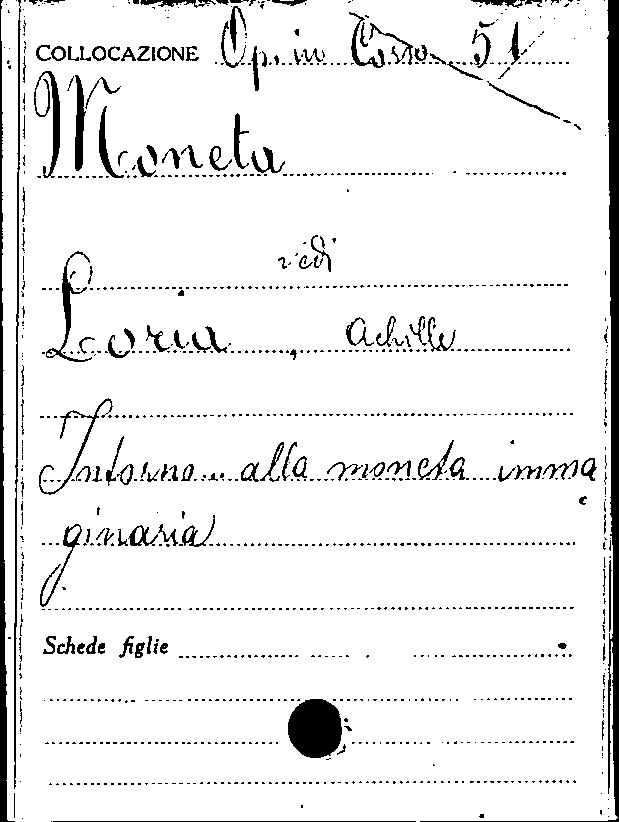 COLLOCAZIONE Op. in Corso 51
Moneta
vedi
Loria, Achille
Intorno alla moneta imma
ginaria
Schede figlie